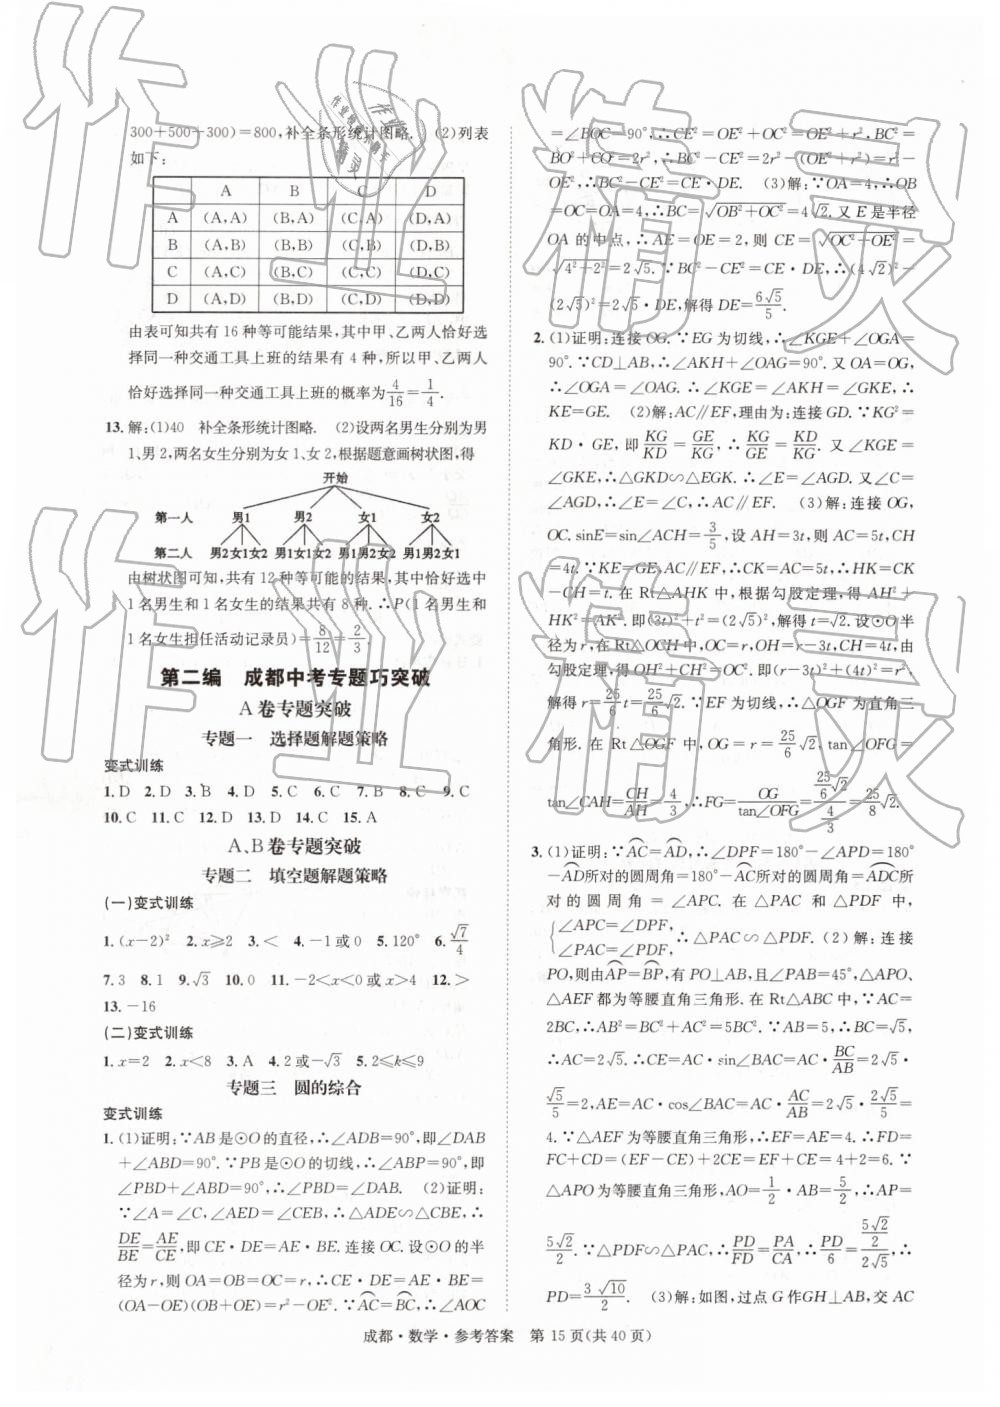 300+500+300)=800,补全条形统计图略. (2)列表
如下:
A B C D
A (A,A) (B,A) (C,A) (D,A)
B (A,B) (B,B) (C,B) (D,B)
C (A,C) (B,C) (C,C) (D,C)
D (A,D) (B,D) (C,D) (D,D)
由表可知共有 16 种等可能结果,其中甲、乙两人恰好选
择同一种交通工具上班的结果有 4 种,所以甲、乙两人
恰好选择同一种交通工具上班的概率为4/16=1/4.
13. 解:(1)40 补全条形统计图略. (2)设两名男生分别为男
1、男 2,两名女生分别为女 1、女 2,根据题意画树状图,得
开始
第一人 男1 男2 女1 女2
第二人 男2女1女2 男1女1女2 男1男2女2 男1男2女1
由树状图可知,共有 12 种等可能的结果,其中恰好选中
1 名男生和 1 名女生的结果共有 8 种.∴P(1 名男生和
1 名女生担任活动记录员)=8/12=2/3.
第二编 成都中考专题巧突破
A 卷专题突破
专题一 选择题解题策略
变式训练
1. D 2. D 3. B 4. D 5. C 6. C 7. C 8. C 9. C
10. C 11. C 12. D 13. D 14. C 15. A
A、B 卷专题突破
专题二 填空题解题策略
(一)变式训练
1. (x−2)² 2. x⩾2 3. < 4. −1 或 0 5. 120° 6. √7/4
7. 3 8. 1 9. √3 10. 0 11. −2<x<0 或 x>4 12. >
13. −16
(二)变式训练
1. x=2 2. x<8 3. A 4. 2 或−√3 5. 2⩽k⩽9
专题三 圆的综合
变式训练
1. (1)证明:∵AB 是⊙O 的直径,∴∠ADB=90°,即∠DAB
+∠ABD=90°.∵PB 是⊙O 的切线,∴∠ABP=90°,即
∠PBD+∠ABD=90°,∴∠PBD=∠DAB. (2)证明:
∵∠A=∠C,∠AED=∠CEB,∴△ADE∽△CBE,∴
DE/BE=AE/CE,即 CE·DE=AE·BE. 连接 OC. 设⊙O 的半
径为 r,则 OA=OB=OC=r,∴CE·DE=AE·BE=
(OA−OE)(OB+OE)=r²−OE².∵⌒AC=⌒BC,∴∠AOC
=∠BOC=90°,∴CE²=OE²+OC²=OE²+r²,BC²=
BO²+CO²=2r²,∴BC²−CE²=2r²−(OE²+r²)=r²−
OE²,∴BC²−CE²=CE·DE. (3)解:∵OA=4,∴OB
=OC=OA=4,∴BC=√(OB²+OC²)=4√2. 又 E 是半径
OA 的中点,∴AE=OE=2,则 CE=√(OC²+OE²)=
√(4²+2²)=2√5.∵BC²−CE²=CE·DE,∴(4√2)²−
(2√5)²=2√5·DE,解得 DE=6√5/5.
2. (1)证明:连接 OG.∵EG 为切线,∴∠KGE+∠OGA=
90°.∵CD⊥AB,∴∠AKH+∠OAG=90°. 又 OA=OG,
∴∠OGA=∠OAG.∴∠KGE=∠AKH=∠GKE,∴
KE=GE. (2)解:AC∥EF,理由为:连接 GD.∵KG²=
KD·GE,即KG/KD=GE/KG,∴KG/GE=KD/KG. 又∠KGE=
∠GKE,∴△GKD∽△EGK.∴∠E=∠AGD. 又∠C=
∠AGD,∴∠E=∠C,∴AC∥EF. (3)解:连接 OG,
OC. sinE=sin∠ACH=3/5,设 AH=3t,则 AC=5t,CH
=4t.∵KE=GE,AC∥EF,∴CK=AC=5t,∴HK=CK
−CH=t. 在 Rt△AHK 中,根据勾股定理,得 AH²+
HK²=AK². 即(3t)²+t²=(2√5)²,解得 t=√2. 设⊙O 半
径为 r,在 Rt△OCH 中,OC=r,OH=r−3t,CH=4t,由
勾股定理,得 OH²+CH²=OC². 即(r−3t)²+(4t)²=r²,
解得 r=25/6 t=25/6 √2.∵EF 为切线,∴△OGF 为直角三
角形. 在 Rt△OGF 中,OG=r=25/6 √2,tan∠OFG=
tan∠CAH=CH/AH=4/3,∴FG=OG/tan∠OFG=(25/6 √2)/(4/3)=25/8 √2.
3. (1)证明:∵⌒AC=⌒AD,∴∠DPF=180°−∠APD=180°
−⌒AD所对的圆周角=180°−⌒AC所对的圆周角=⌒ADC所
对的圆周角=∠APC. 在△PAC 和△PDF 中,
{∠APC=∠DPF,
∠PAC=∠PDF, ∴△PAC∽△PDF. (2)解:连接
PO,则由⌒AP=⌒BP,有 PO⊥AB,且∠PAB=45°,△APO、
△AEF 都为等腰直角三角形. 在 Rt△ABC 中,∵AC=
2BC,∴AB²=BC²+AC²=5BC².∵AB=5,∴BC=√5,
∴AC=2√5.∴CE=AC·sin∠BAC=AC·BC/AB=2√5·
√5/5=2,AE=AC·cos∠BAC=AC·AC/AB=2√5·2√5/5=
4.∵△AEF 为等腰直角三角形,∴EF=AE=4.∴FD=
FC+CD=(EF−CE)+2CE=EF+CE=4+2=6.∵
△APO 为等腰直角三角形,AO=1/2·AB=5/2,∴AP=
5√2/2.∵△PDF∽△PAC,∴PD/FD=PA/CA,∴PD/6=(5√2/2)/(2√5),∴
PD=3√10/2. (3)解:如图,过点 G 作GH⊥AB,交 AC
成都·数学·参考答案 第 15 页(共 40 页)
作业精灵
作业精灵